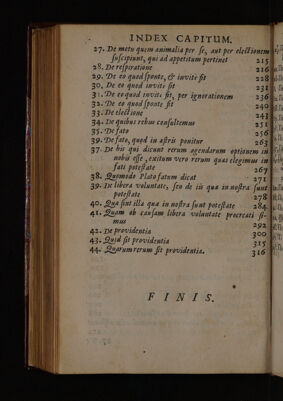 INDEX CAPITUM.
27. De metu quem animalia per se, aut per electionem
suscipiunt, qui ad appetitum pertinet 215
28. De respiratione 216
29. De eo quod sponte, & invite fit 228
30. De eo quod invite fit 231
31. De eo quod invite fit, per ignorationem 236
32. De eo quod sponte fit 240
33. De electione 243
34. De quibus rebus consultemus 251
35. De fato 256
36. De fato, quod in astris ponitur 263
37. De his qui dicunt rerum agendarum optionem in
nobis esse, exitum vero rerum quas elegimus in
fati potestate 267
38. Quomodo Plato fatum dicat 271
39. De libera voluntate, seu de iis quæ in nostra sunt
potestate 278
40. Quæ sint illa quæ in nostra sunt potestate 284
41. Quam ob causam libera voluntate procreati si-
mus 292
42. De providentia 300
43. Quid sit providentia 315
44. Quarum rerum sit providentia. 316
FINIS.